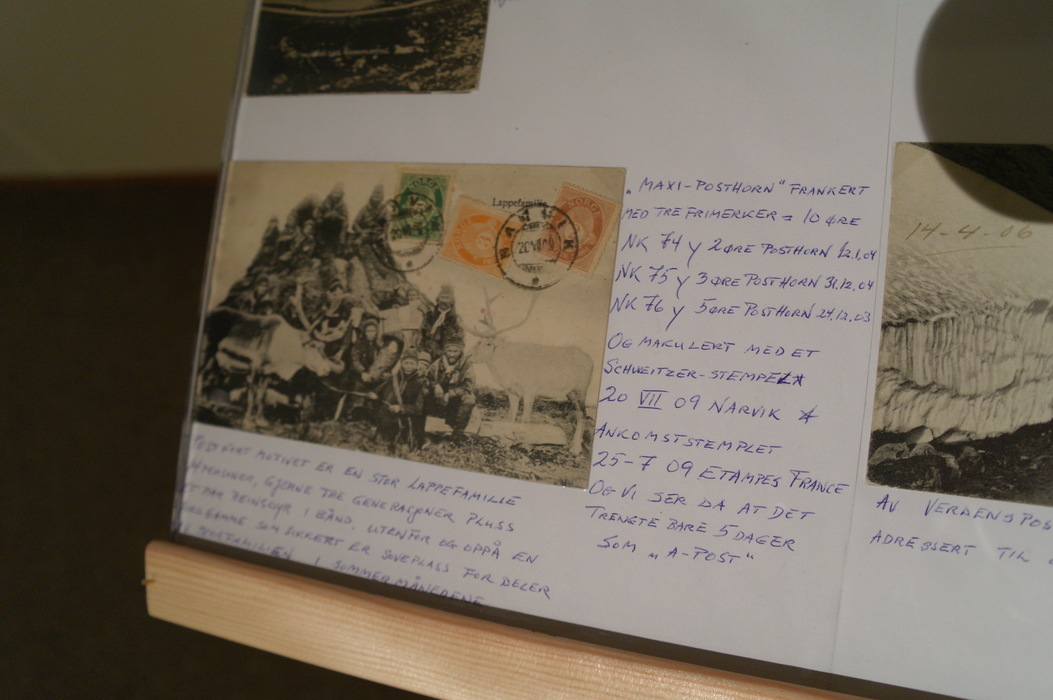 Lappefamilie
NORGE
NARVIK
20 VII 09
„MAXI-POSTHORN" FRANKERT
MED TRE FRIMERKER = 10 ØRE
NK 74 y 2 ØRE POSTHORN 12.1.04
NK 75 y 3 ØRE POSTHORN 31.12.04
NK 76 y 5 ØRE POSTHORN 24.12.03
OG MAKULERT MED ET
SCHWEITZER-STEMPEL
20 VII 09 NARVIK *
ANKOMSTSTEMPLET
25-7 09 ETAMPES FRANCE
OG VI SER DA AT DET
TRENGTE BARE 5 DAGER
SOM „A-POST"
POSTKORT MOTIVET ER EN STOR LAPPEFAMILIE
GJERNE TRE GENERASJONER PLUSS
ET PAR REINSDYR I BÅND, UTENFOR OG OPPÅ EN
SOM SIKKERT ER SOVEPLASS FOR DELER
I SOMMERMÅNEDENE
14-4-06
AV VERDENSPOS
ADRESSERT TIL